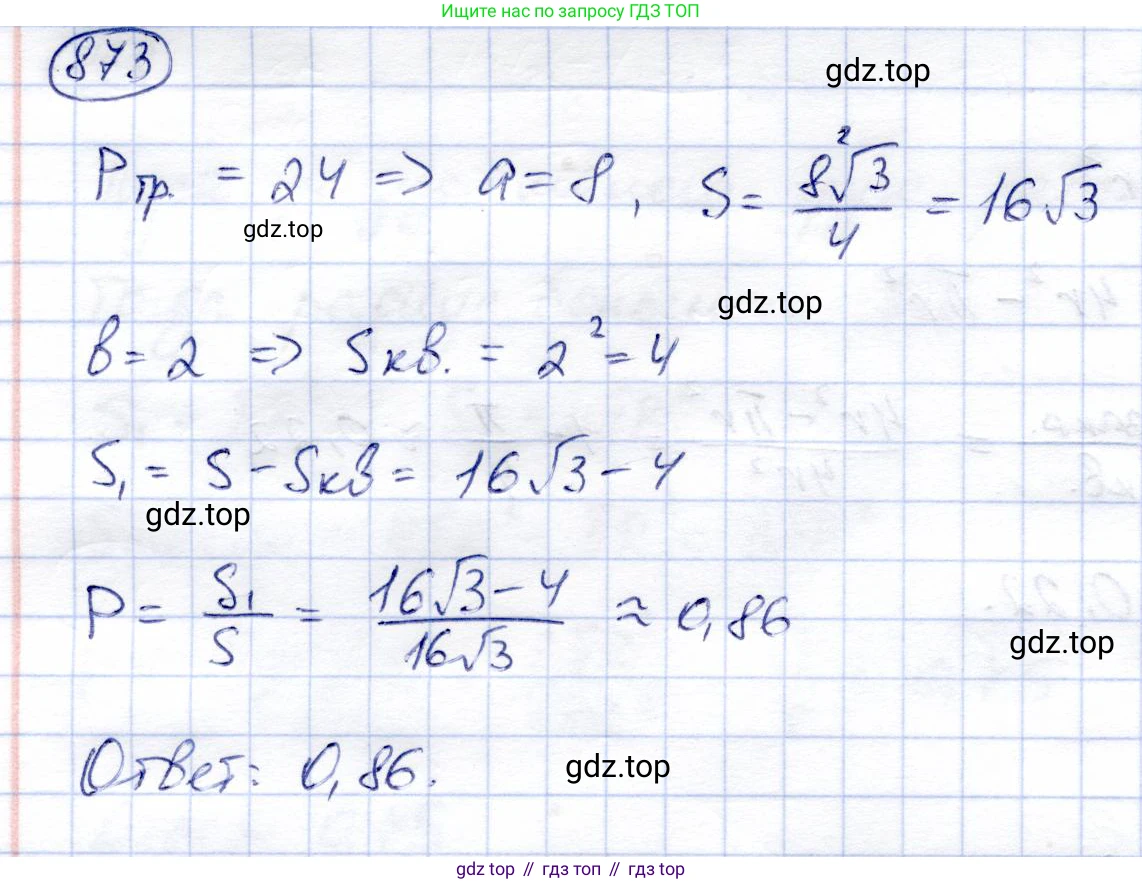 Ищите нас по запросу ГДЗ ТОП
873
gdz.top
Pтр. = 24 => a = 8, S = 8²√3/4 = 16√3
gdz.top
gdz.top
b = 2 => Sкв. = 2² = 4
S₁ = S - Sкв = 16√3 - 4
gdz.top
P = S₁/S = (16√3 - 4)/(16√3) ≈ 0,86
gdz.top
Ответ: 0,86.
gdz.top
gdz top // гдз топ // гдз top